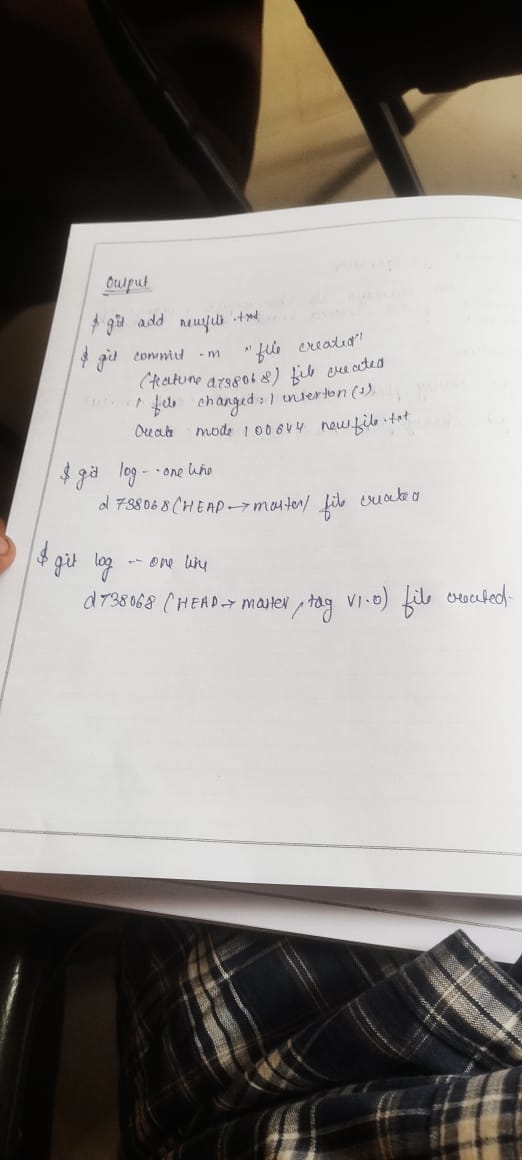 Output
$ git add newfile.txt
$ git commit -m "file created"
(feature d738068) file created
1 file changed: 1 insertion (+),
Create mode 100644 newfile.txt
$ git log -- one line
d738068 (HEAD → master) file created
$ git log -- one line
d738068 (HEAD → master, tag v1.0) file created.